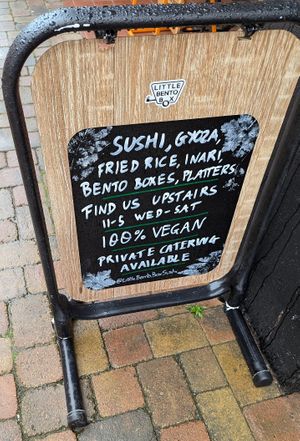 LITTLE
BENTO
BOX
SUSHI, GYOZA,
FRIED RICE, INARI,
BENTO BOXES, PLATTERS
FIND US UPSTAIRS
11-5 WED-SAT
100% VEGAN
PRIVATE CATERING
AVAILABLE
@LittleBentoBoxSushi